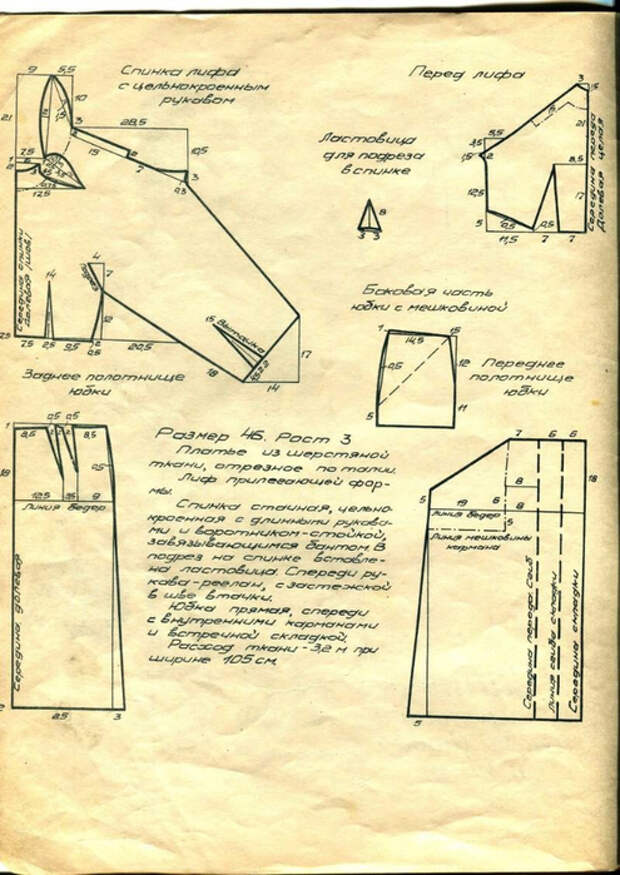 Спинка лифа
с цельнокроенным
рукавом
Перед лифа
Ластовица
для подреза
в спинке
Середина переда
Долевая целая
Середина спинки
Долевая /шов/
Подрез
Вытачка
Боковая часть
юбки с мешковиной
Заднее полотнище
юбки
Переднее
полотнище
юбки
Размер 46. Рост 3
Платье из шерстяной
ткани, отрезное по талии.
Лиф прилегающей фор-
мы.
Спинка стачная, цельно-
кроенная с длинными рукава-
ми и воротником-стойкой,
завязывающимся бантом. В
подрез на спинке вставле-
на ластовица. Спереди ру-
кава-реглан, с застежкой
в шве втачки.
Юбка прямая, спереди
с внутренними карманами
и встречной складкой.
Расход ткани - 3,2 м при
ширине 105 см.
Линия бедер
Середина, долевая
Линия бедер
Линия мешковины
кармана
Середина переда. Сгиб
Линия сгиба складки
Середина складки
9 5,5
21
10
3
28,5
15
2
7
10,5
3
0,3
7,5
1
2
17,5
14
4
7
12
7,5
2,5
9,5
20,5
15
18
17
14
8
3 3
3
1,5
21
5,5
3,5
1,5
2
12,5
8,5
17
5
0,5
11,5
7
7
1
14,5
15
0,5
12
5
11
1
0,5
0,5
8,5
8,5
18
0,5
12,5
9
25
3
7
6
6
18
5
8
19
6
8
5
5